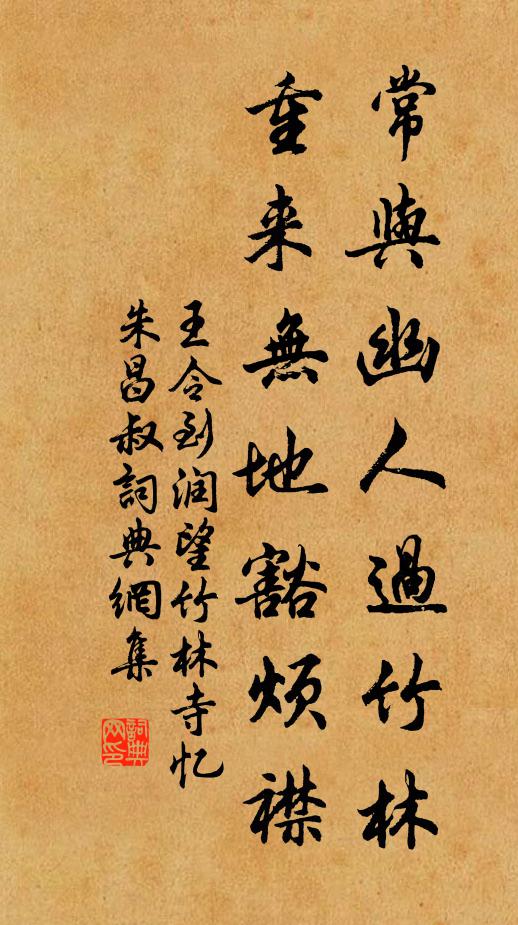 常與幽人過竹林
重来無地豁烦襟
王令到润望竹林寺忆
朱昌叔詞典網集
詞典网印